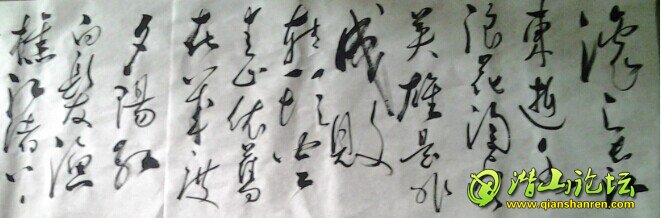 滚滚长江
東逝水
浪花淘尽
英雄是非
成敗
转头空
青山依舊
在几度
夕陽红
白髮渔
樵江渚上
潜山论坛
www.qianshanren.com